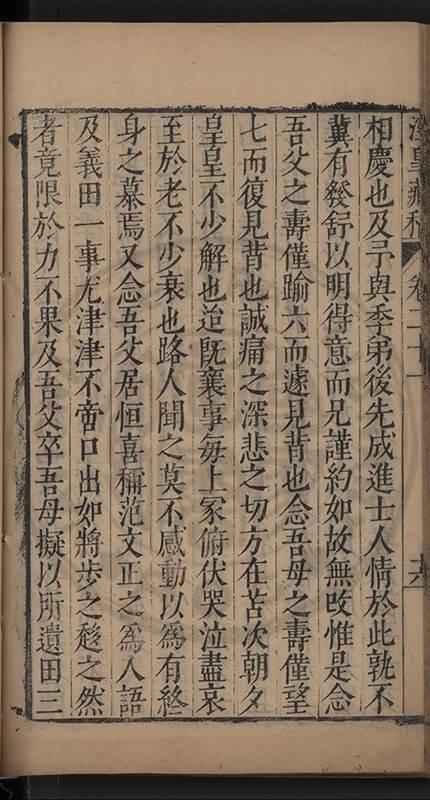 卷二十一
相慶也及予與季弟後先成進士人情於此孰不
冀有發舒以明得意而兄謹約如故無改惟是念
吾父之壽僅踰六而遽見背也念吾母之壽僅望
七而復見背也誠痛之深悲之切方在苫次朝夕
皇皇不少解也迨既襄事每上冢俯伏哭泣盡哀
至於老不少衰也路人聞之莫不感動以為有終
身之慕焉又念吾父居恒喜稱范文正之為人語
及義田一事尤津津不啻口出如將步之趨之然
者竟限於力不果及吾父卒吾母擬以所遺田三